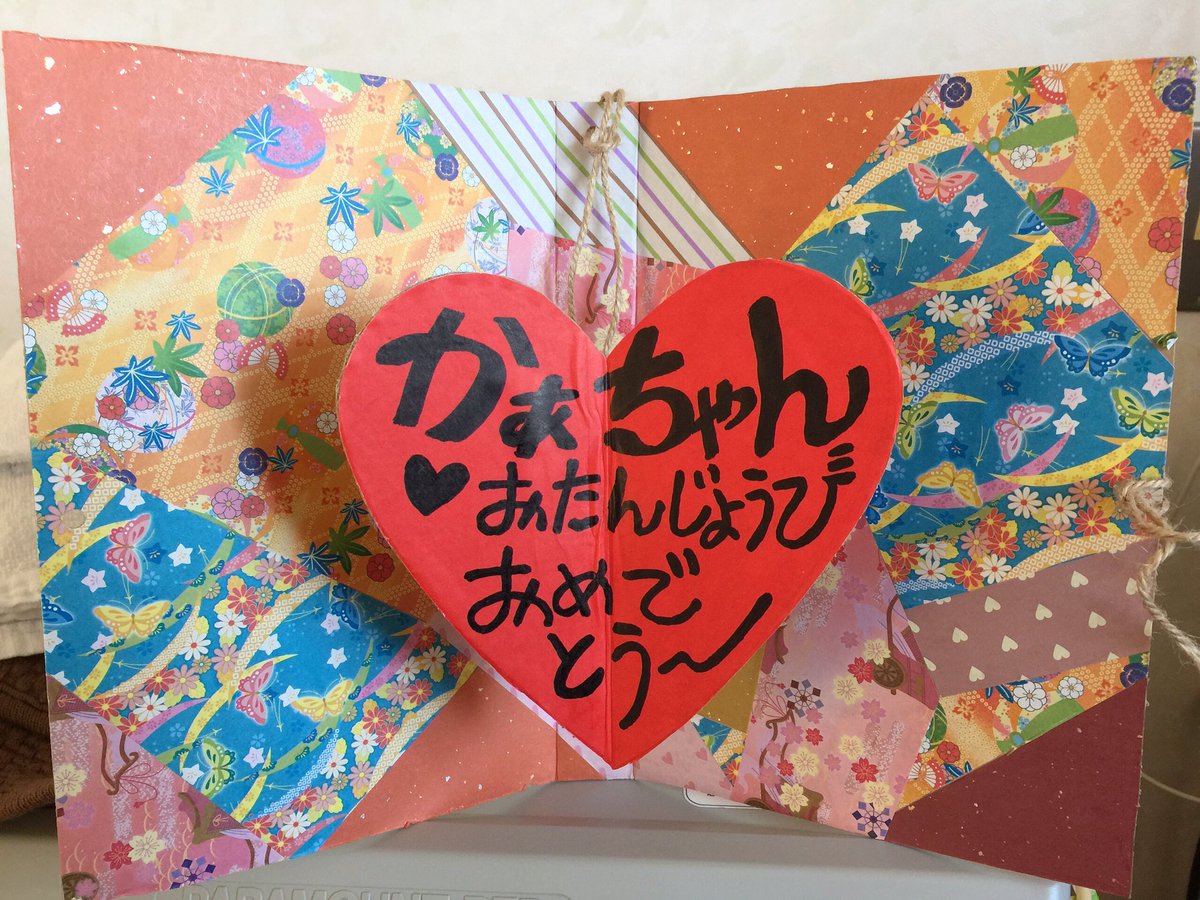 かぁちゃん
♥おたんじょうび
おめで
とう〜
PARAMOUNT BED